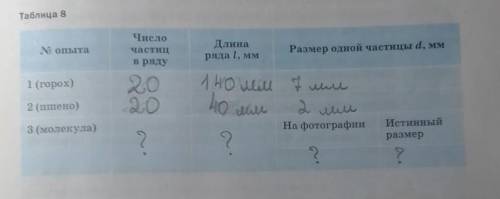 Таблица 8
№ опыта Число частиц в ряду Длина ряда l, мм Размер одной частицы d, мм
1 (горох) 20 140 мм 7 мм
2 (пшено) 20 40 мм 2 мм
3 (молекула) ? ? На фотографии Истинный размер
? ?